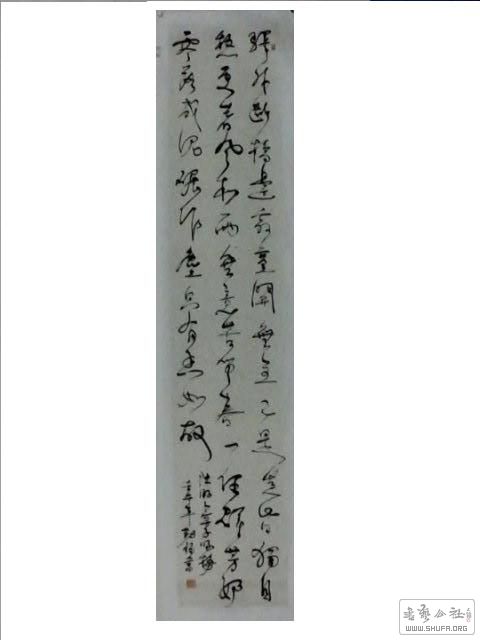 驛外斷橋邊寂寞開無主已是黄昏獨自
愁更着風和雨無意苦争春一任群芳妒
零落成泥碾作塵只有香如故
陸游卜算子詠梅
壬午年書
書藝公社
WWW.SHUFA.ORG